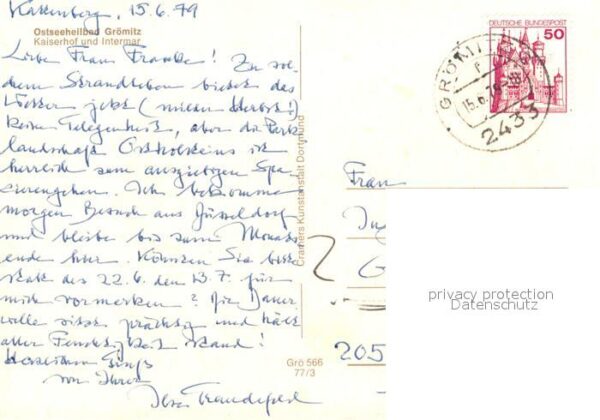 Kattenberg, 15.6.79
Ostseeheilbad Grömitz
Kaiserhof und Intermar
Liebe Frau Franke! Zu sol-
chem Strandleben bietet das
Wetter jetzt (mieser Herbst!)
keine Gelegenheit, aber die Park-
landschaft Ostholsteins ist
herrlich zum ausgiebigen Spa-
zierengehen. Ich bekomme
morgen Besuch aus Düsseldorf
und bleibe bis zum Monats-
ende hier. Können Sie bitte
statt des 22.6. den 13.7. für
mich vormerken? Die Dauer-
welle sitzt prächtig und hält
aller Feuchtigkeit stand!
Herzlichen Gruß
von Ihrer
Cramers Kunstanstalt Dortmund
Grö 566
77/3
DEUTSCHE BUNDESPOST
50
GRÖMITZ
15.6.79
2433
Frau
205
privacy protection
Datenschutz